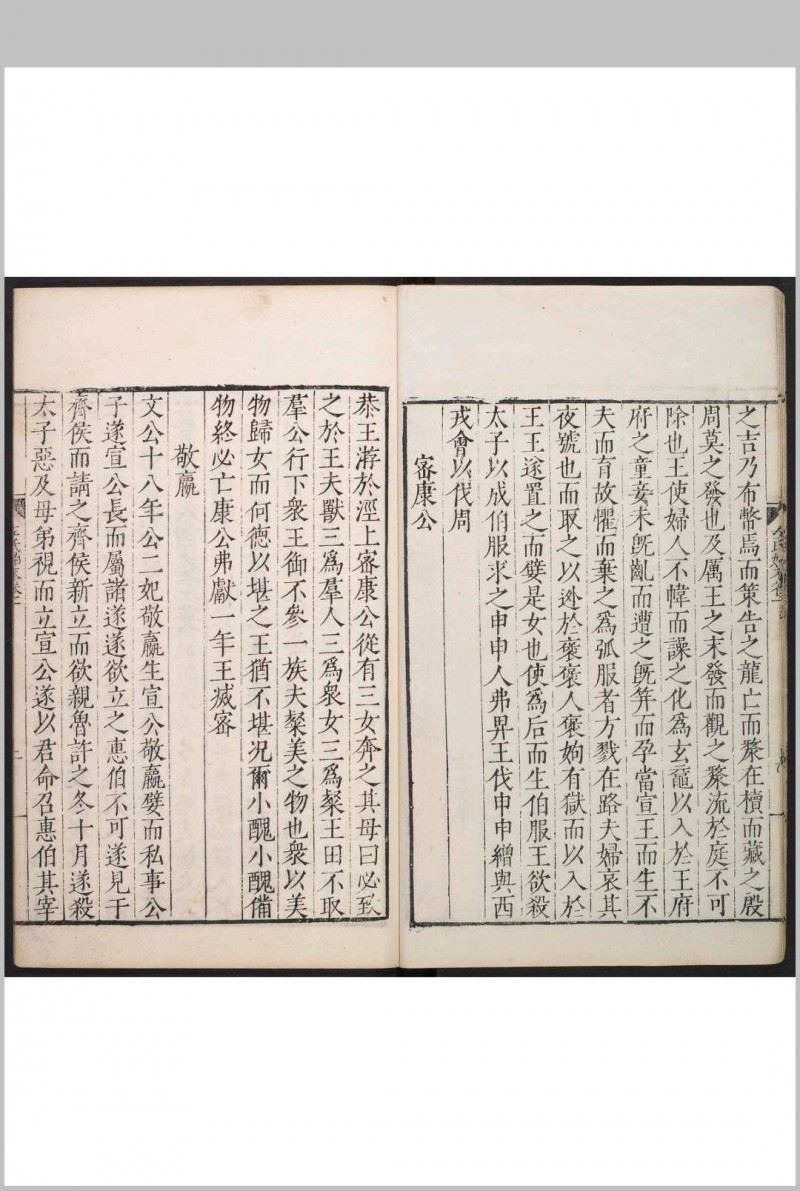 之吉乃布幣焉而策告之龍亡而漦在櫝而藏之殷
周莫之發也及厲王之末發而觀之漦流於庭不可
除也王使婦人不幃而譟之化為玄黿以入於王府
府之童妾未旣齓而遭之旣筓而孕當宣王而生不
夫而育故懼而棄之為弧服者方戮在路夫婦哀其
夜號也而取之以逃於褒褒人褒姁有獄而以入於
王王遂置之而嬖是女也使爲后而生伯服王欲殺
太子以成伯服求之申申人弗畀王伐申申繒與西
戎會以伐周
宻康公
恭王游於涇上宻康公從有三女奔之其母曰必致
之於王夫獸三爲羣人三爲衆女三爲粲王田不取
羣公行下衆王御不參一族夫粲美之物也衆以美
物歸女而何德以堪之王猶不堪况爾小醜小醜備
物終必亡康公弗獻一年王滅宻
敬嬴
文公十八年公二妃敬嬴生宣公敬嬴嬖而私事公
子遂宣公長而屬諸遂遂欲立之惠伯不可遂見于
齊侯而請之齊侯新立而欲親魯許之冬十月遂殺
太子惡及母弟視而立宣公遂以君命召惠伯其宰